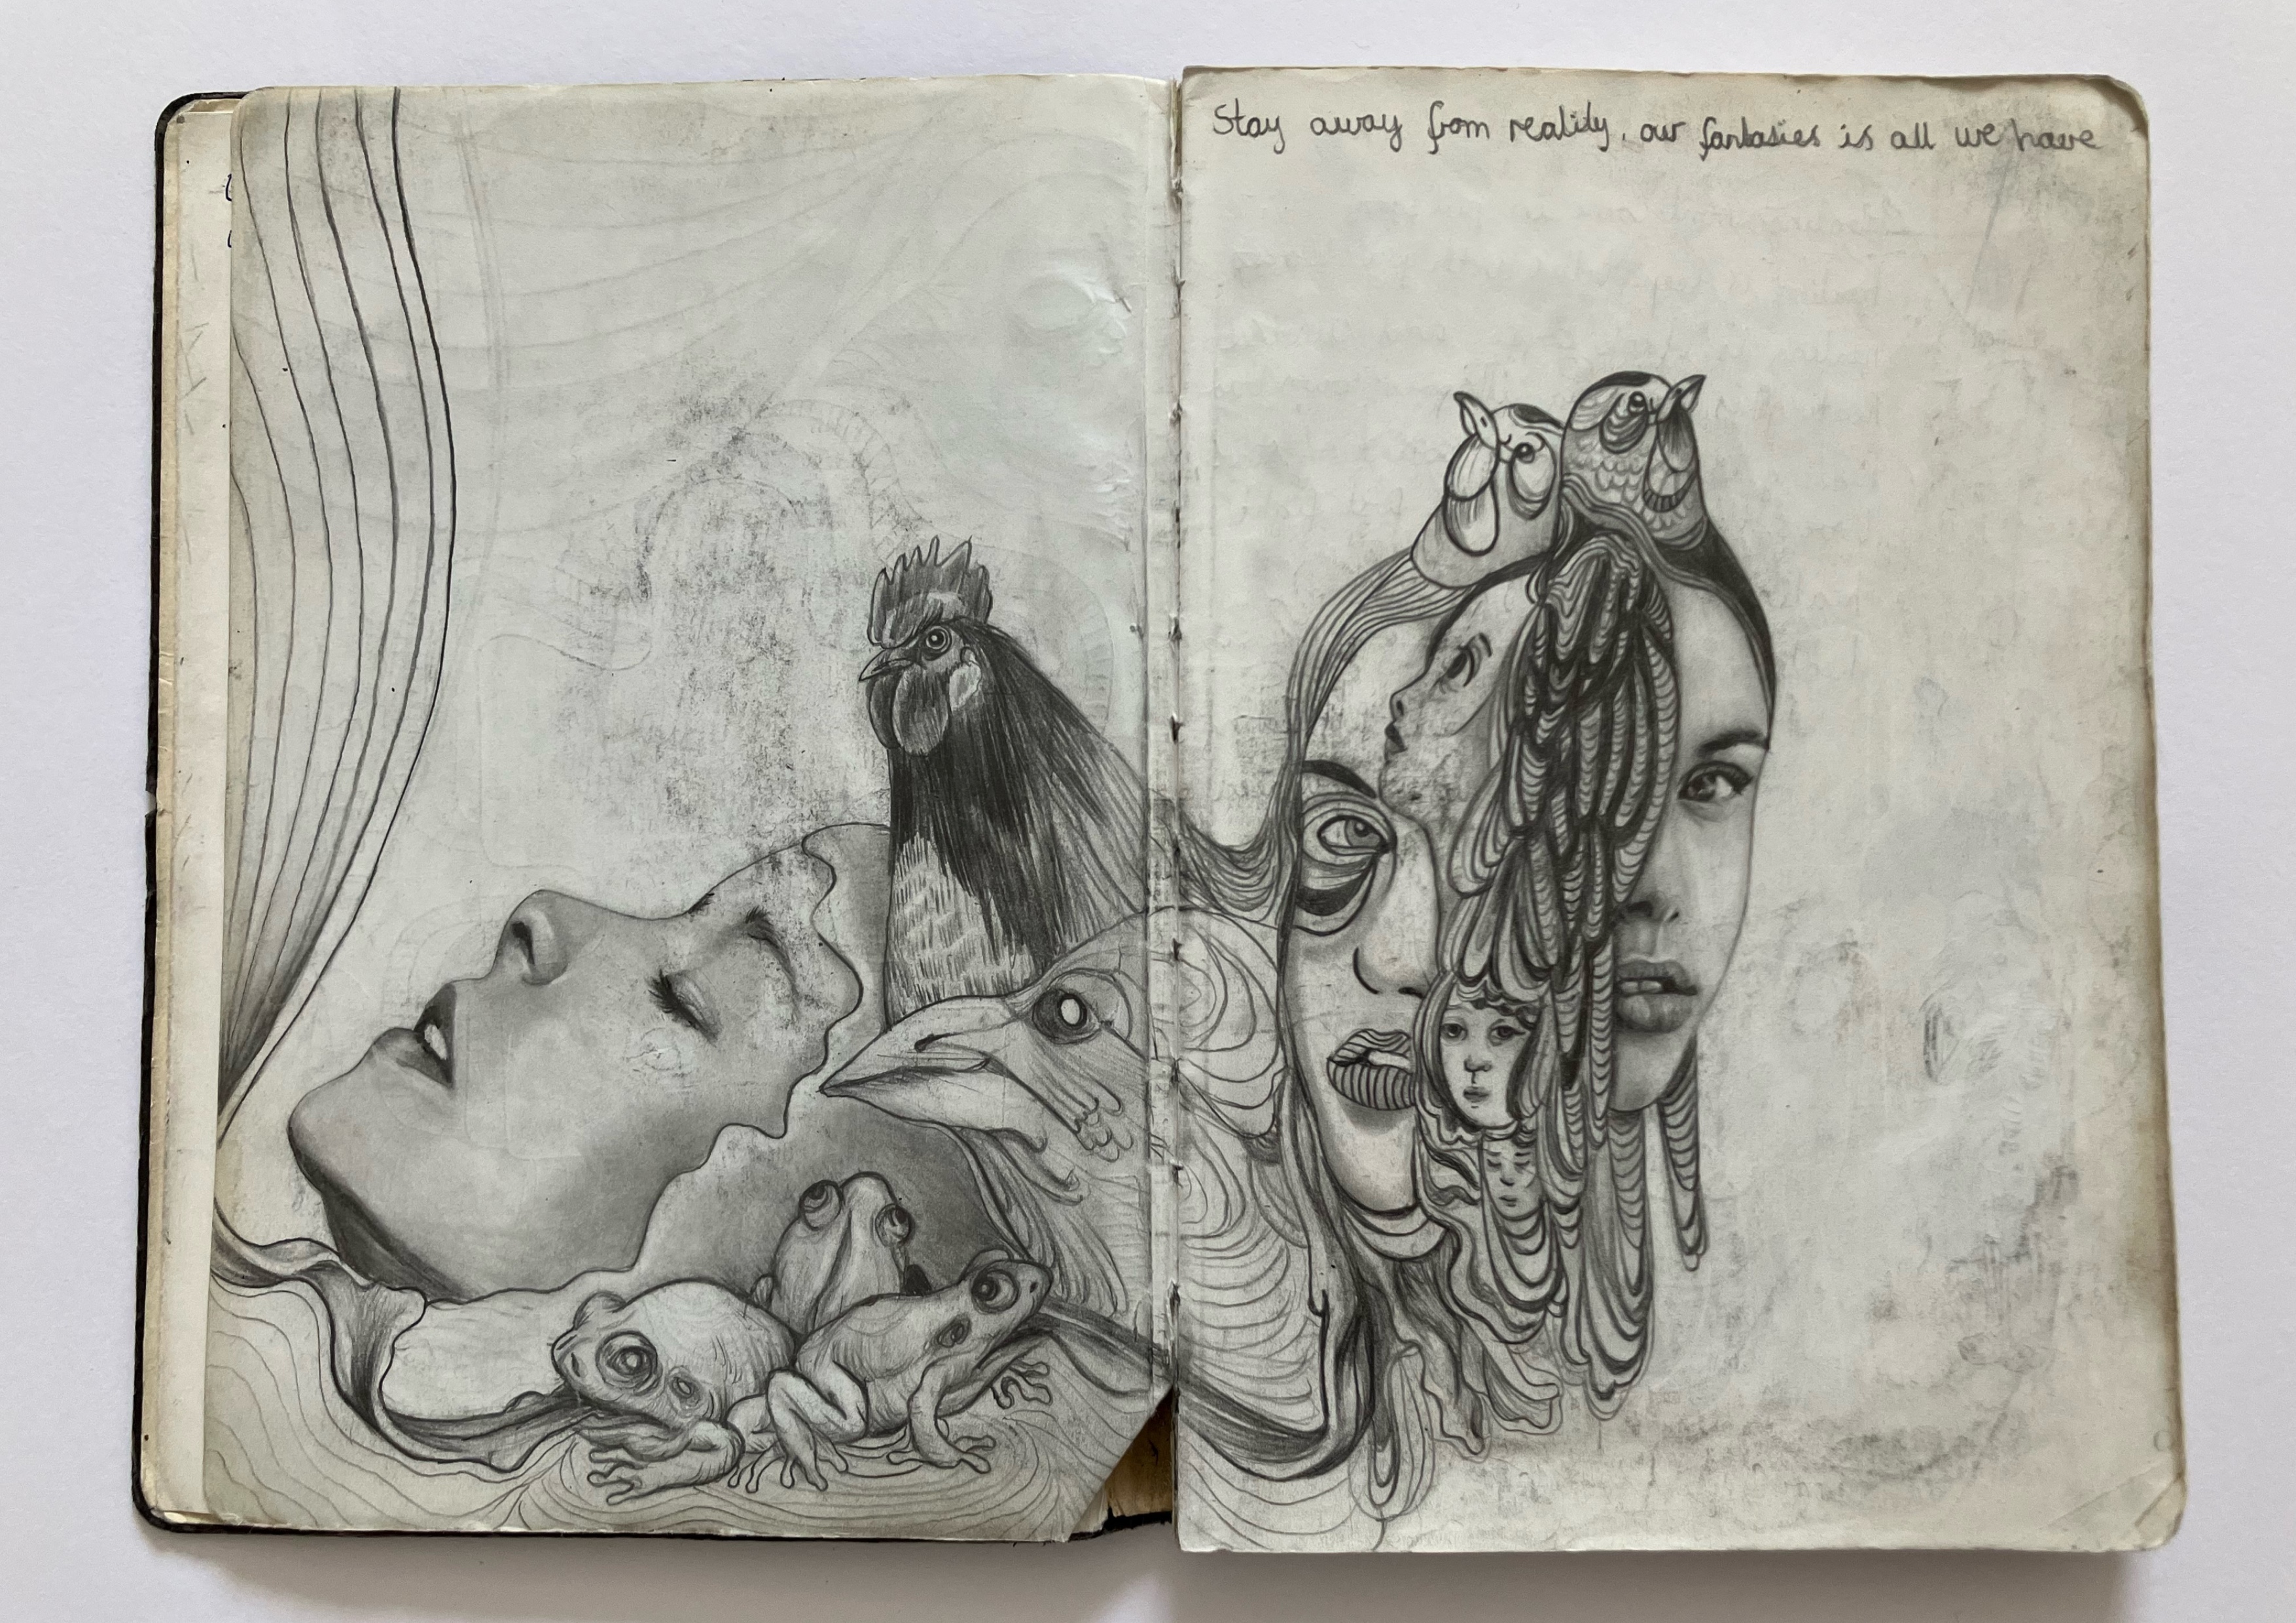 Stay away from reality, our fantasies is all we have